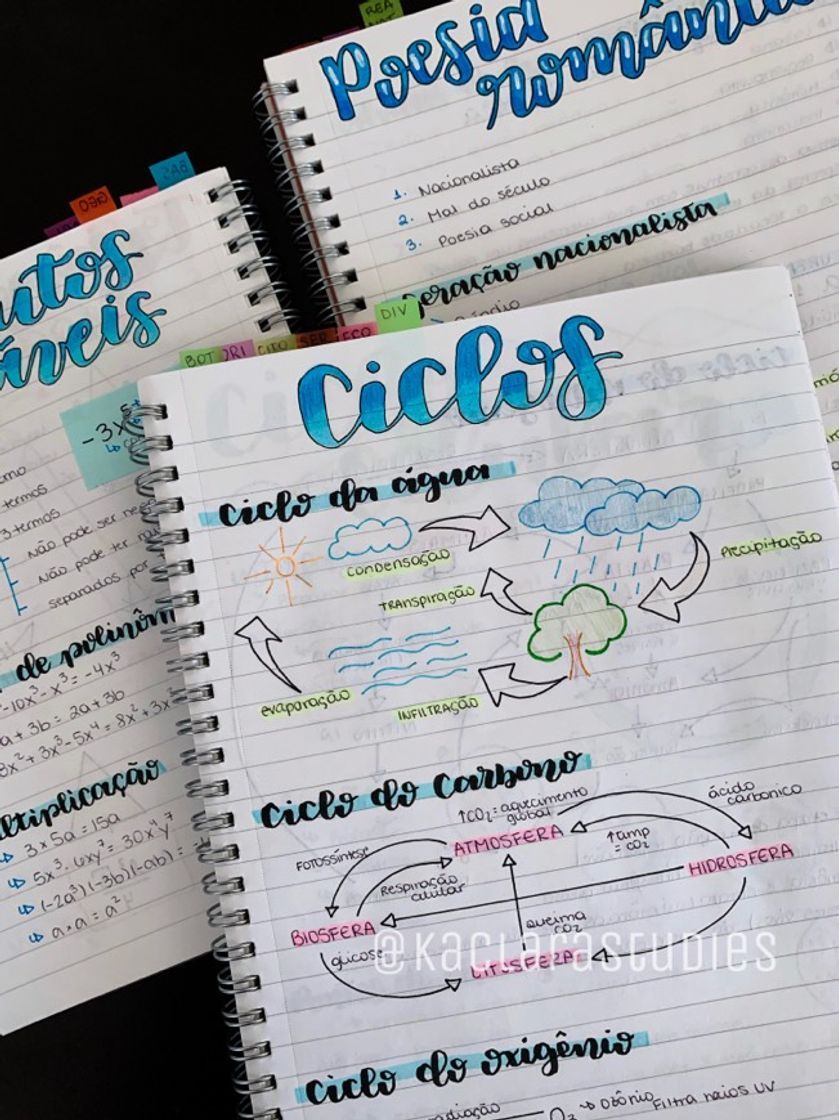 REA
Poesia
romântica
1. Nacionalista
2. Mal do século
3. Poesia social
geração nacionalista
GEO
BAS
-3x
3 termos
Não pode ser
Não pode ter
separados por
de polinôm
-10x³ - x³ = -4x³
a + 3b = 2a + 3b
8x² + 3x³ - 5x⁴ = 8x² + 3x
ltiplicação
3 x 5a = 15a
5x³ . 6xy⁷ = 30x⁴y⁷
(-2a³)(-3b)(-ab) =
a x a = a²
BOT
CITO
SER
ECO
DIV
Ciclos
Ciclo da água
condensação
Precipitação
TRANSPIRAÇÃO
evaporação
INFILTRAÇÃO
Ciclo do Carbono
↑CO₂ = aquecimento
global
ácido
carbonico
ATMOSFERA
↑tmp
= CO₂
FOTOSSíntese
HIDROSFERA
Respiração
celular
BIOSFERA
queima
CO₂
glicose
LITOSFERA
@KACLARASTUDIES
Ciclo do oxigênio
radiação
O₂ → Ozônio
Filtra raios UV